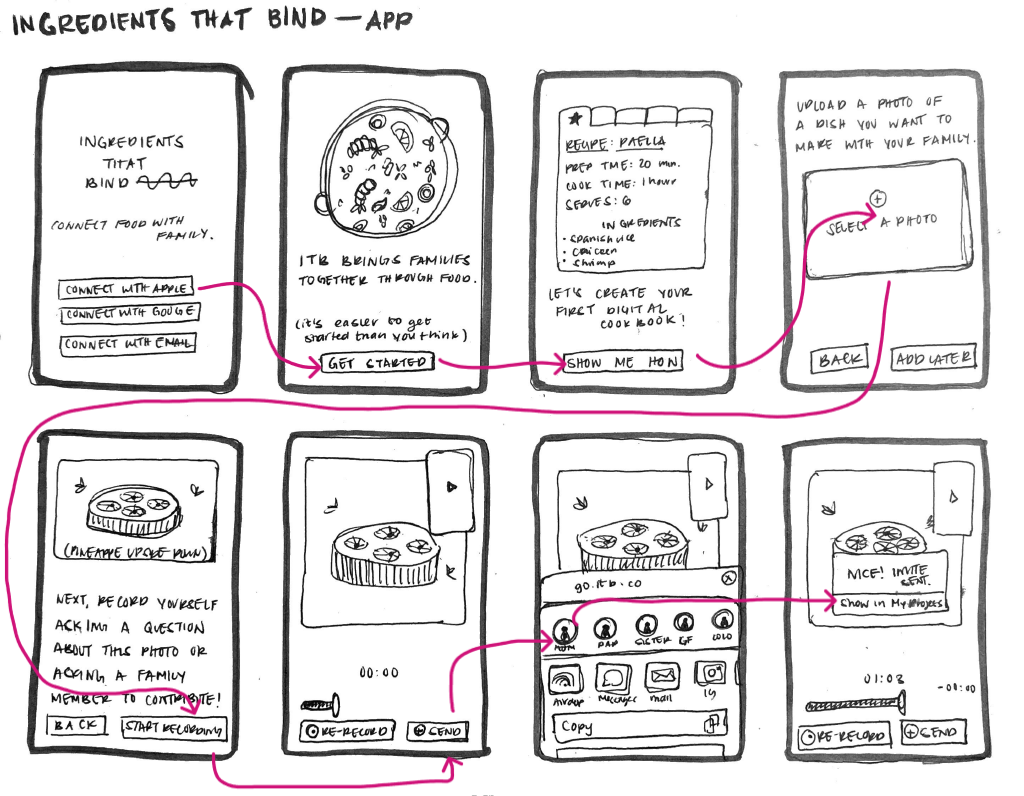 INGREDIENTS THAT BIND — APP
INGREDIENTS
THAT
BIND
CONNECT FOOD WITH
FAMILY.
CONNECT WITH APPLE
CONNECT WITH GOOGE
CONNECT WITH EMAIL
ITB BRINGS FAMILIES
TOGETHER THROUGH FOOD.
(it's easier to get
started than you think)
GET STARTED
RECIPE: PAELLA
PREP TME: 20 min.
COOK TIME: 1 hour
SERVES: 6
INGREDIENTS
• Spanish rice
• Chicken
• Shrimp
LET'S CREATE YOUR
FIRST DIGITAL
COOKBOOK!
SHOW ME HOW
UPLOAD A PHOTO OF
A DISH YOU WANT TO
MAKE WITH YOUR FAMILY.
SELECT A PHOTO
BACK
ADD LATER
(PINEAPPLE UPSIDE DOWN)
NEXT, RECORD YOURSELF
ASKING A QUESTION
ABOUT THIS PHOTO OR
ASKING A FAMILY
MEMBER TO CONTRIBUTE!
BACK
START RECORDING
00:00
RE-RECORD
SEND
go.itb.co
MOM
DAD
SISTER
GF
LOLO
Airdrop
Messages
mail
IG
Copy
NICE! INVITE
SENT.
Show in My Projects
01:03
-00:00
RE-RECORD
SEND